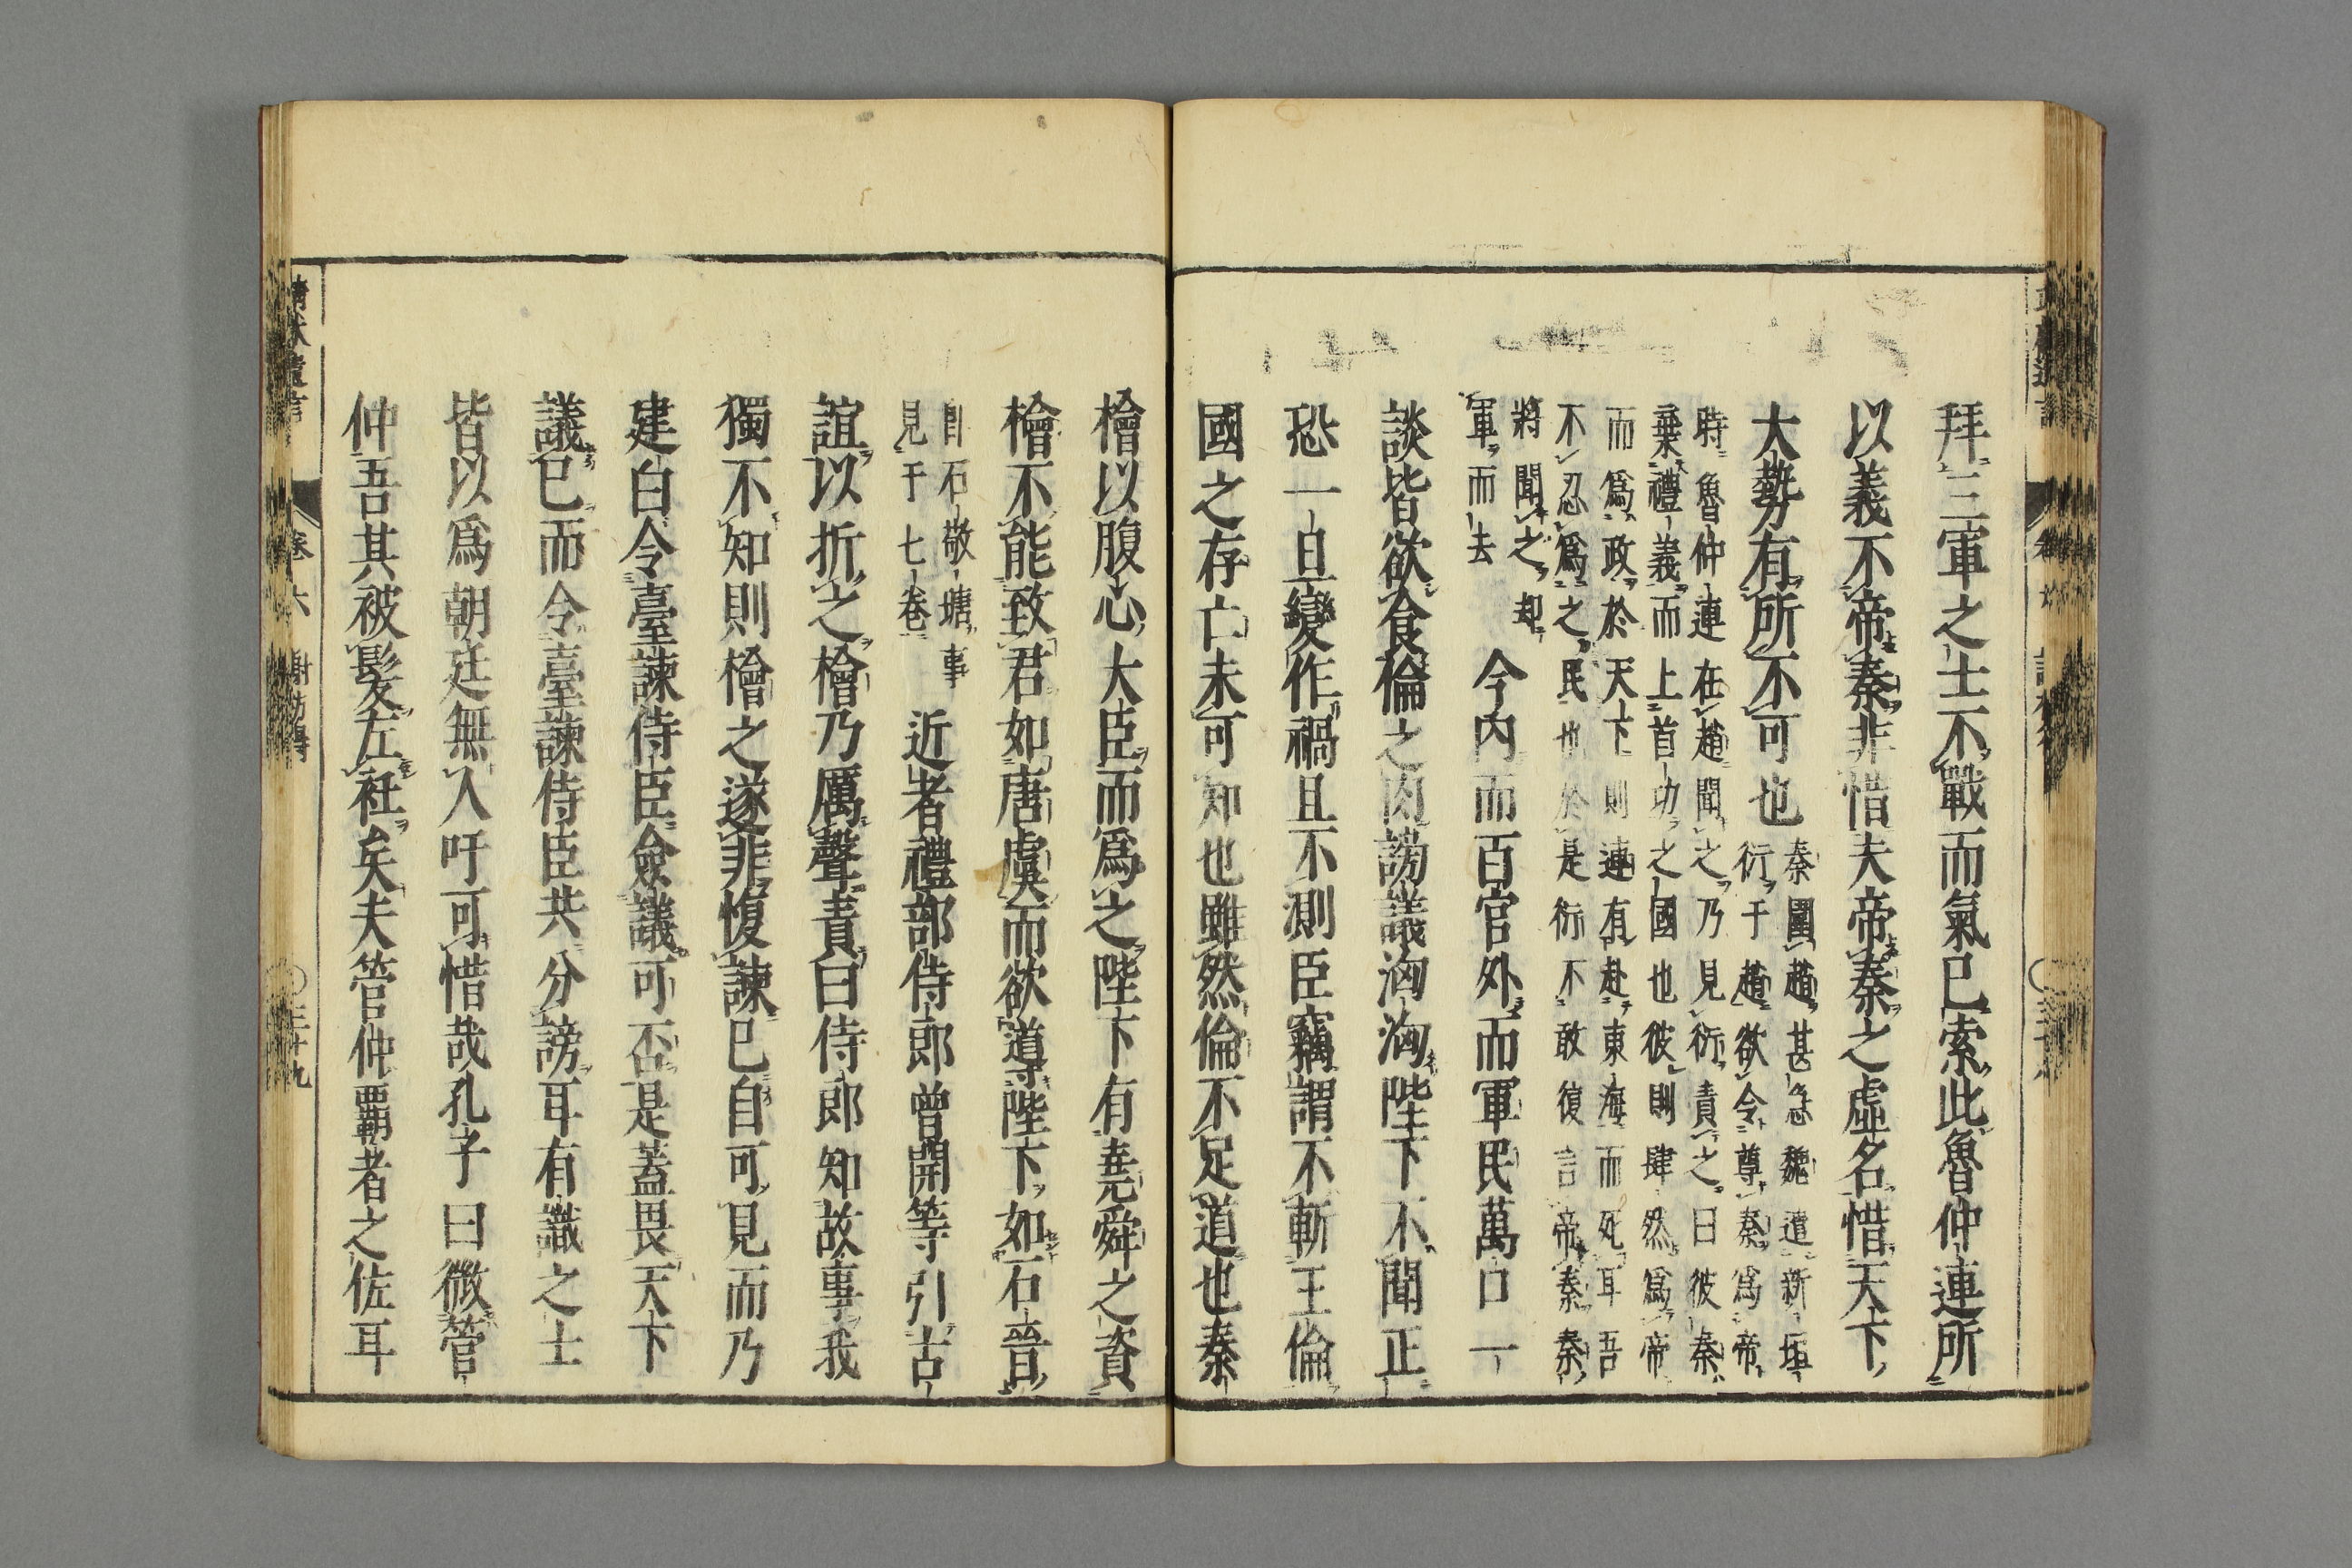 拜三軍之士不戰而氣已索此魯仲連所
以義不帝秦非惜夫帝秦之虛名惜天下
大勢有所不可也
秦圍趙甚急魏遣新垣
衍于趙欲令尊秦爲帝
時魯仲連在趙聞之乃見衍責之曰彼秦
棄禮義而上首功之國也彼則肆然爲帝
而爲政於天下則連有赴東海而死耳吾
不忍爲之民也於是衍不敢復言帝秦秦
將聞之却
軍而去
今內而百官外而軍民萬口一
談皆欲食倫之肉謗議洶洶陛下不聞正
恐一旦變作禍且不測臣竊謂不斬王倫
國之存亡未可知也雖然倫不足道也秦
檜以腹心大臣而爲之陛下有堯舜之資
檜不能致君如唐虞而欲導陛下如石晉
自石敬瑭事
見于七卷
近者禮部侍郎曾開等引古
誼以折之檜乃厲聲責曰侍郎知故事我
獨不知則檜之遂非愎諫已自可見而乃
建白令臺諫侍臣僉議可否是蓋畏天下
議已而令臺諫侍臣共分謗耳有識之士
皆以爲朝廷無人吁可惜哉孔子曰微管
仲吾其被髮左衽矣夫管仲霸者之佐耳
靖獻遺言 卷六 謝枋得 三十九